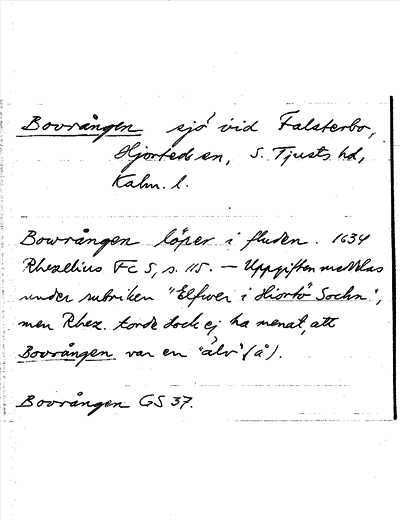 Bovrången sjö vid Falsterbo,
Hjorted sn, S. Tjusts hd,
Kalm. l.
Bowrången löper i fluden. 1634
Rhezelius Fc 5, s. 115. — Uppgiften meddelas
under rubriken "Elfwer i Hiortö Sochn",
men Rhez. torde dock ej ha menat, att
Bovrången var en "älv" (å).
Bovrången GS 37.